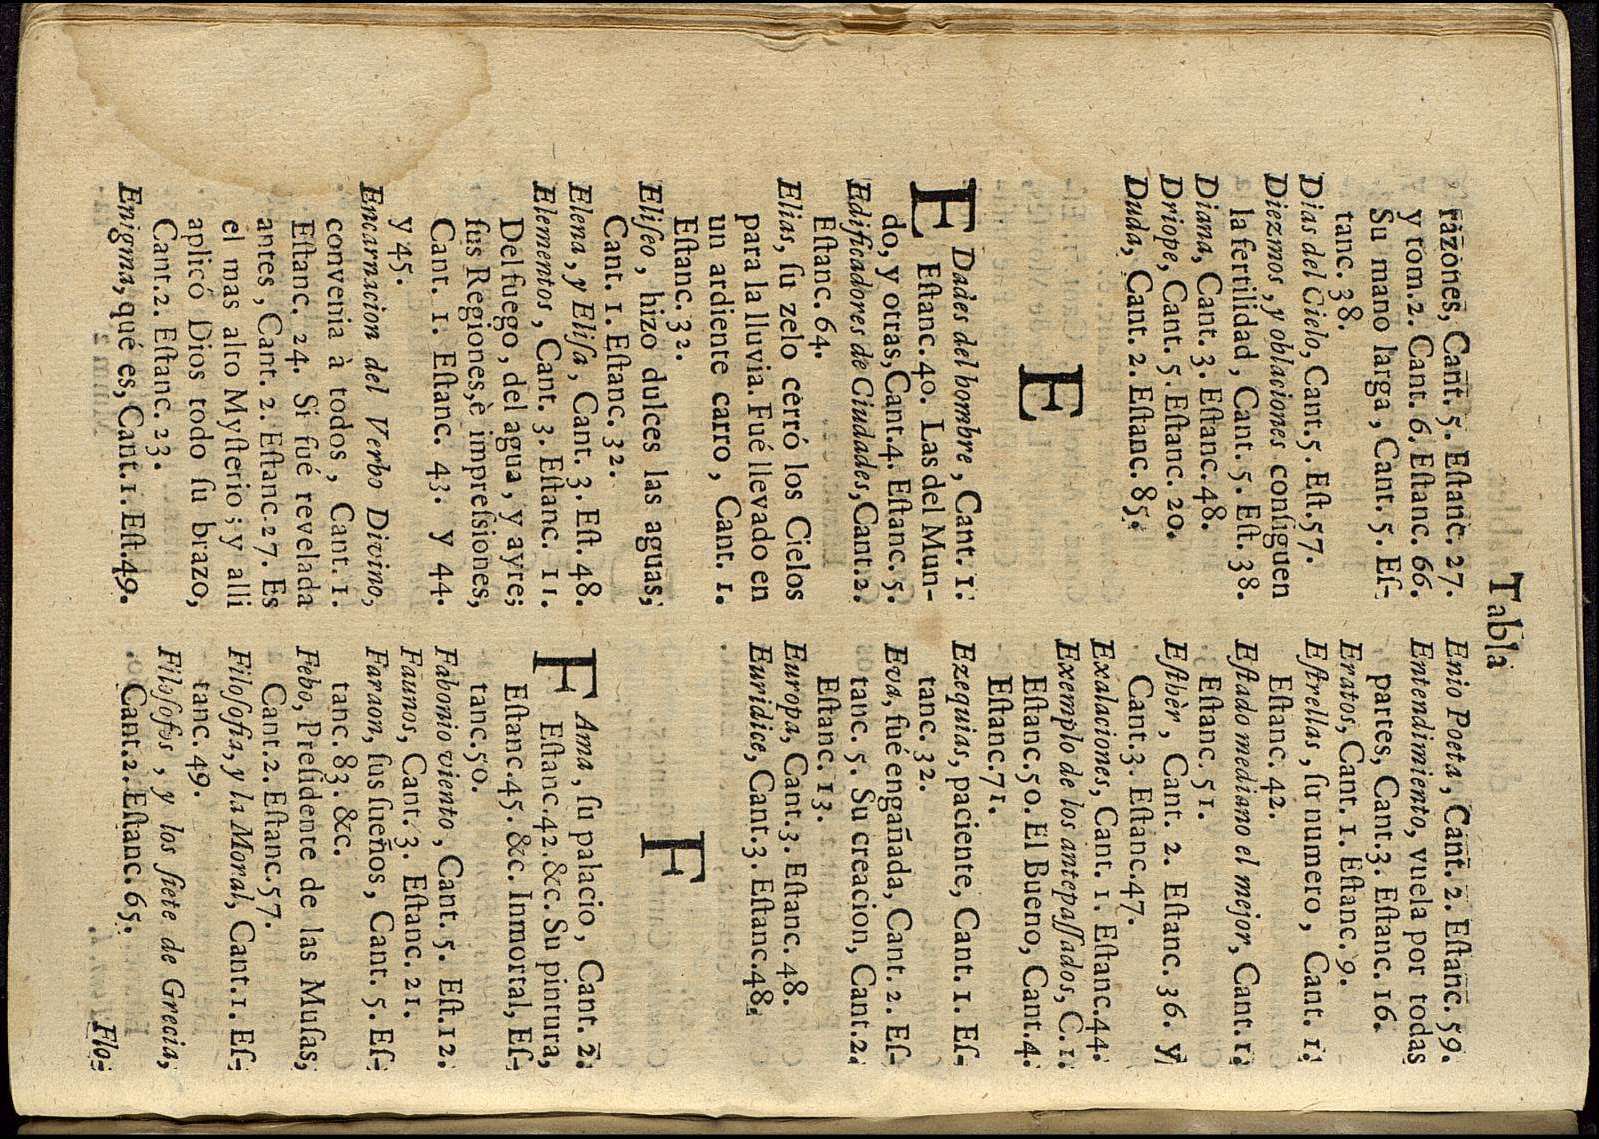 Tabla
razones, Cant. 5. Eſtanc. 27.
y tom. 2. Cant. 6. Eſtanc. 66.
Su mano larga, Cant. 5. Eſ-
tanc. 38.
Dias del Cielo, Cant. 5. Eſt. 57.
Diezmos, y oblaciones conſiguen
la fertilidad, Cant. 5. Eſt. 38.
Diana, Cant. 3. Eſtanc. 48.
Driope, Cant. 5. Eſtanc. 20.
Duda, Cant. 2. Eſtanc. 85.
E
EDades del hombre, Cant. 1.
Eſtanc. 40. Las del Mun-
do, y otras, Cant. 4. Eſtanc. 5.
Edificadores de Ciudades, Cant. 2.
Eſtanc. 64.
Elias, ſu zelo cerró los Cielos
para la lluvia. Fué llevado en
un ardiente carro, Cant. 1.
Eſtanc. 32.
Eliſeo, hizo dulces las aguas,
Cant. 1. Eſtanc. 32.
Elena, y Eliſa, Cant. 3. Eſt. 48.
Elementos, Cant. 3. Eſtanc. 11.
Del fuego, del agua, y ayre;
ſus Regiones, è impreſsiones,
Cant. 1. Eſtanc. 43. y 44.
y 45.
Encarnacion del Verbo Divino,
convenia à todos, Cant. 1.
Eſtanc. 24. Si fué revelada
antes, Cant. 2. Eſtanc. 27. Es
el mas alto Myſterio; y alli
aplicó Dios todo ſu brazo,
Cant. 2. Eſtanc. 23.
Enigma, qué es, Cant. 1. Eſt. 49.
Enio Poeta, Cant. 2. Eſtanc. 59.
Entendimiento, vuela por todas
partes, Cant. 3. Eſtanc. 16.
Eratos, Cant. 1. Eſtanc. 9.
Eſtrellas, ſu numero, Cant. 1.
Eſtanc. 42.
Eſtado mediano el mejor, Cant. 1.
Eſtanc. 51.
Eſthèr, Cant. 2. Eſtanc. 36. y
Cant. 3. Eſtanc. 47.
Exalaciones, Cant. 1. Eſtanc. 44.
Exemplo de los antepaſſados, C. 1.
Eſtanc. 50. El Bueno, Cant. 4.
Eſtanc. 71.
Ezequias, paciente, Cant. 1. Eſ-
tanc. 32.
Eva, fué engañada, Cant. 2. Eſ-
tanc. 5. Su creacion, Cant. 2.
Eſtanc. 13.
Europa, Cant. 3. Eſtanc. 48.
Euridice, Cant. 3. Eſtanc. 48.
F
FAma, ſu palacio, Cant. 2.
Eſtanc. 42. &c. Su pintura,
Eſtanc. 45. &c. Inmortal, Eſ-
tanc. 50.
Fabonio viento, Cant. 5. Eſt. 12.
Faunos, Cant. 3. Eſtanc. 21.
Faraon, ſus ſueños, Cant. 5. Eſ-
tanc. 83. &c.
Febo, Preſidente de las Muſas,
Cant. 2. Eſtanc. 57.
Filoſofia, y la Moral, Cant. 1. Eſ-
tanc. 49.
Filoſofos, y los ſiete de Grecia,
Cant. 2. Eſtanc. 65.
Flo-